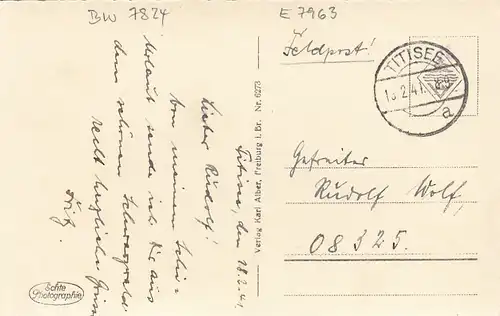 BW 7824
E 7963
Titisee, den 18.2.41
Lieber Rudolf!
Von meinem Schi-
Urlaub sende ich Dir aus
dem schönen Schwarzwald
recht herzliche Grüsse
Fritz.
Verlag Karl Alber, Freiburg i. Br. Nr. 6273
Echte
Photographie
Feldpost!
TITISEE
18.2.41
a
Gefreiter
Rudolf Wolf,
08325.